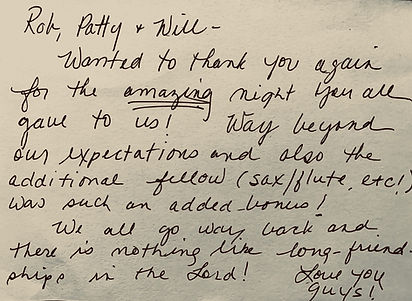 Rob, Patty & Will -
Wanted to thank you again
for the amazing night you all
gave to us! Way beyond
our expectations and also the
additional fellow (sax/flute, etc!)
was such an added bonus!
We all go way back and
there is nothing like long-friend-
ships in the Lord! Love you
guys!